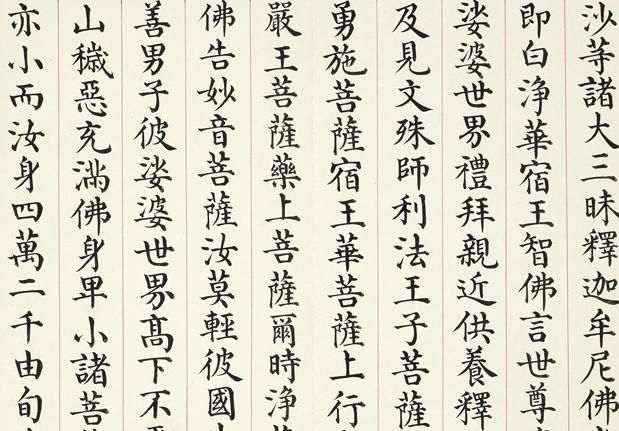 沙等諸大三昧釋迦牟尼佛
即白淨華宿王智佛言世尊
娑婆世界禮拜親近供養釋
及見文殊師利法王子菩薩
勇施菩薩宿王華菩薩上行
嚴王菩薩藥上菩薩爾時淨
佛告妙音菩薩汝莫輕彼國
善男子彼娑婆世界高下不
山穢惡充滿佛身卑小諸菩
亦小而汝身四萬二千由旬